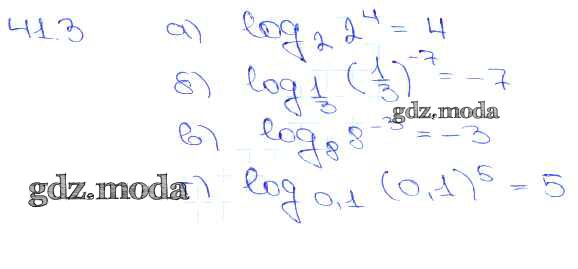 41.3 а) log₂ 2⁴ = 4
б) log_{1/3} (1/3)⁻⁷ = -7
gdz.moda
в) log₈ 8⁻³ = -3
gdz.moda
г) log_{0,1} (0,1)⁵ = 5